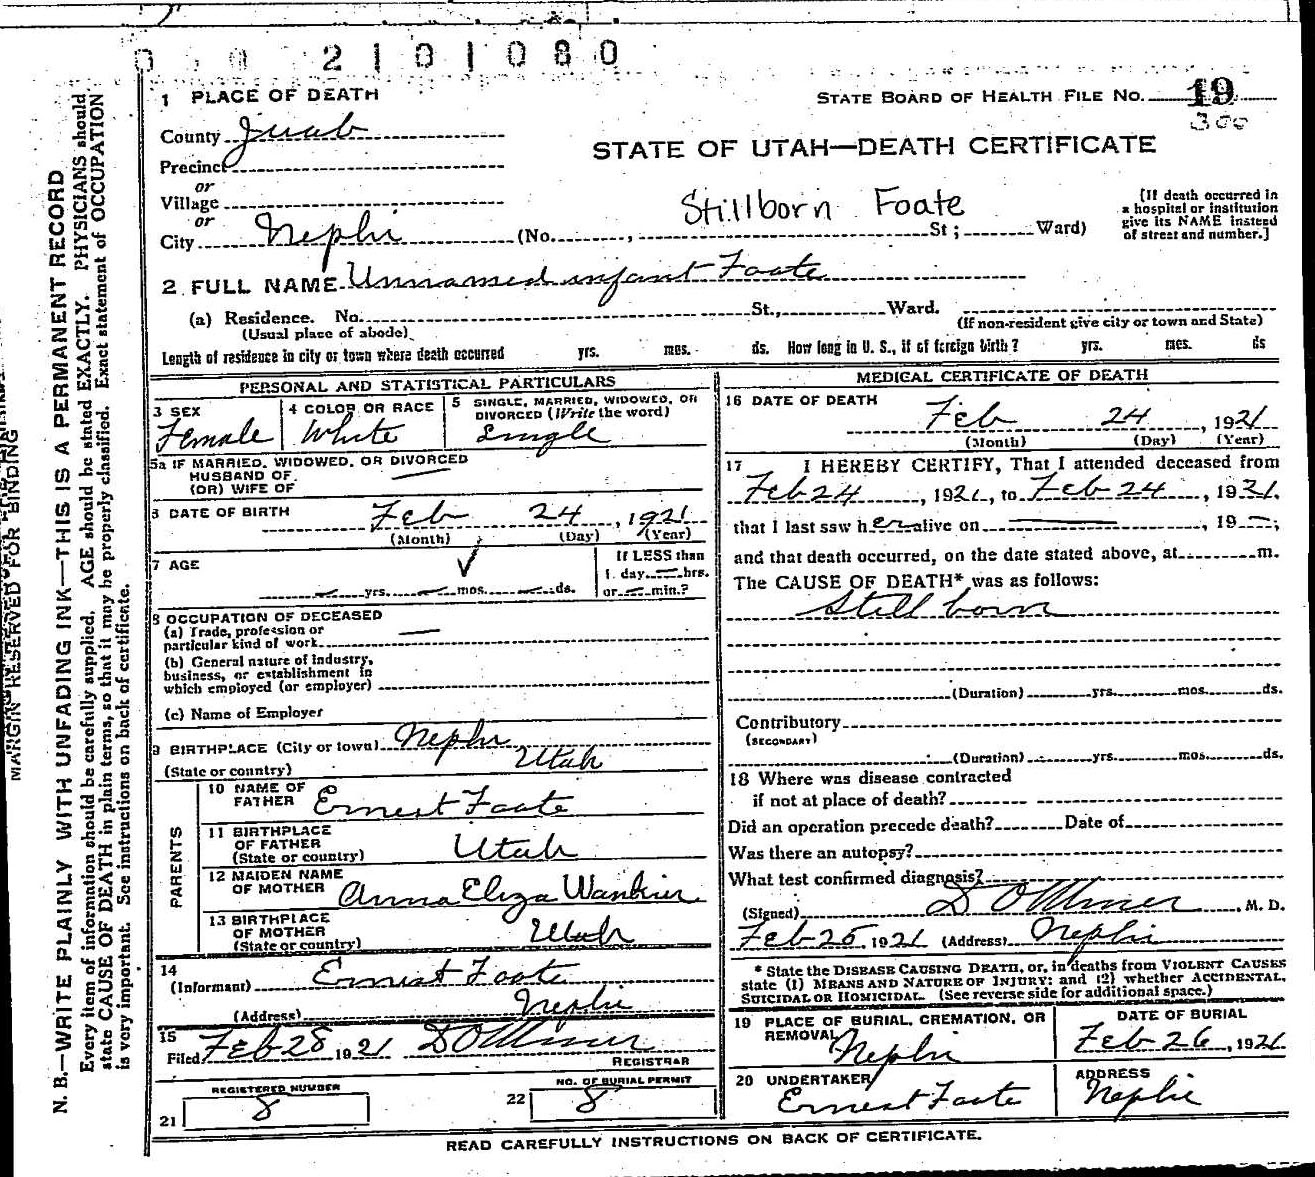 2101080
1 PLACE OF DEATH
STATE BOARD OF HEALTH FILE NO. 19
300
County Juab
STATE OF UTAH—DEATH CERTIFICATE
Precinct
or
Village
Stillborn Foate
[If death occurred in a hospital or institution give its NAME instead of street and number.]
or
City Nephi (No. , St ; Ward)
2 FULL NAME Unnamed infant Foate
(a) Residence. No. St., Ward.
(Usual place of abode) (If non-resident give city or town and State)
Length of residence in city or town where death occurred yrs. mos. ds. How long in U. S., if of foreign birth? yrs. mos. ds
PERSONAL AND STATISTICAL PARTICULARS
3 SEX Female
4 COLOR OR RACE White
5 SINGLE, MARRIED, WIDOWED, OR DIVORCED (Write the word) Single
5a IF MARRIED, WIDOWED, OR DIVORCED
HUSBAND OF
(OR) WIFE OF
6 DATE OF BIRTH Feb 24, 1921
(Month) (Day) (Year)
7 AGE
yrs. mos. ds.
If LESS than
1 day hrs.
or min.?
8 OCCUPATION OF DECEASED
(a) Trade, profession or
particular kind of work
(b) General nature of industry,
business, or establishment in
which employed (or employer)
(c) Name of Employer
9 BIRTHPLACE (City or town) Nephi
(State or country) Utah
PARENTS
10 NAME OF FATHER Ernest Foate
11 BIRTHPLACE OF FATHER (State or country) Utah
12 MAIDEN NAME OF MOTHER Anna Eliza Wankier
13 BIRTHPLACE OF MOTHER (State or country) Utah
14
(Informant) Ernest Foate
(Address) Nephi
15
Filed Feb 28 1921
REGISTRAR
REGISTERED NUMBER
21 8
NO. OF BURIAL PERMIT
22 8
MEDICAL CERTIFICATE OF DEATH
16 DATE OF DEATH
Feb 24, 1921
(Month) (Day) (Year)
17 I HEREBY CERTIFY, That I attended deceased from
Feb 24, 1921, to Feb 24, 1921.
that I last saw her alive on , 19 ;
and that death occurred, on the date stated above, at m.
The CAUSE OF DEATH* was as follows:
Still born
(Duration) yrs. mos. ds.
Contributory
(SECONDARY)
(Duration) yrs. mos. ds.
18 Where was disease contracted
if not at place of death?
Did an operation precede death? Date of
Was there an autopsy?
What test confirmed diagnosis?
(Signed) , M. D.
Feb 25 1921 (Address) Nephi
* State the DISEASE CAUSING DEATH, or, in deaths from VIOLENT CAUSES
state (1) MEANS AND NATURE OF INJURY; and (2) whether ACCIDENTAL,
SUICIDAL OR HOMICIDAL. (See reverse side for additional space.)
19 PLACE OF BURIAL, CREMATION, OR REMOVAL Nephi
DATE OF BURIAL Feb 26, 1921
20 UNDERTAKER Ernest Foate
ADDRESS Nephi
READ CAREFULLY INSTRUCTIONS ON BACK OF CERTIFICATE.
MARGIN RESERVED FOR BINDING
N. B.—WRITE PLAINLY WITH UNFADING INK—THIS IS A PERMANENT RECORD
Every item of information should be carefully supplied. AGE should be stated EXACTLY. PHYSICIANS should
state CAUSE OF DEATH in plain terms, so that it may be properly classified. Exact statement of OCCUPATION
is very important. See instructions on back of certificate.